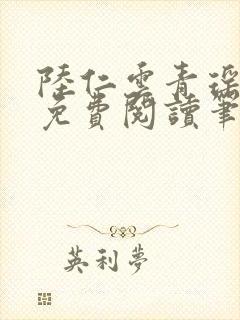 陸仁雲青瑤
免費閱讀筆
英利夢